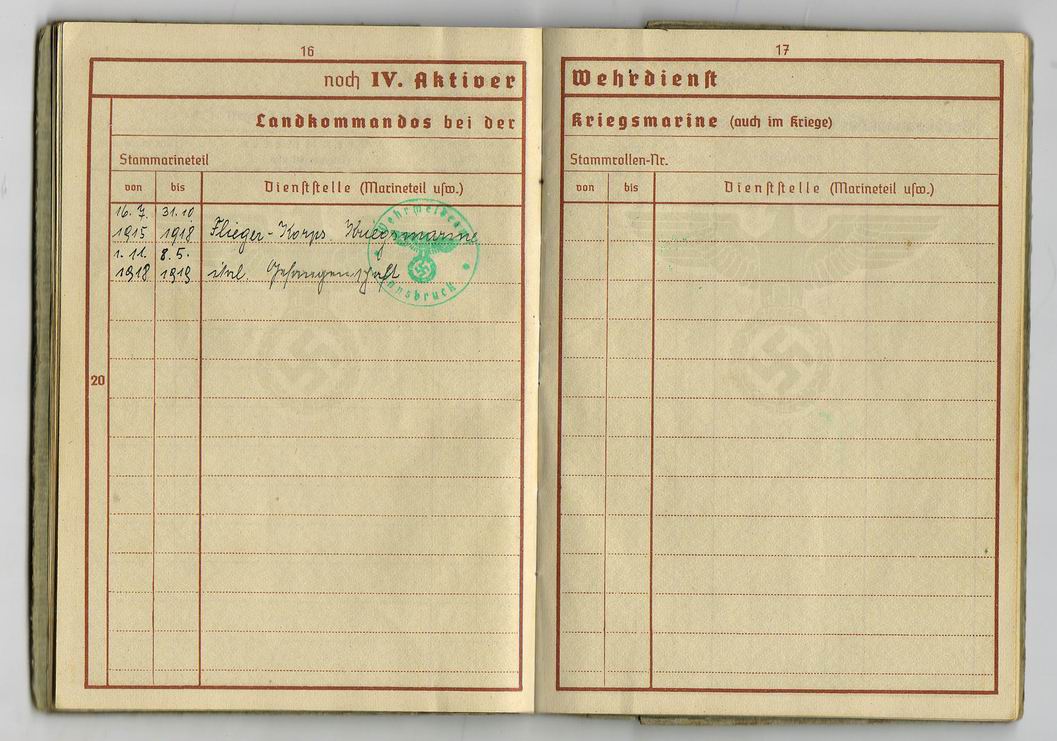 16
noch IV. Aktiver
Landkommandos bei der
Stammarineteil
von bis Dienststelle (Marineteil usw.)
16.7. 31.10
1915 1918 Flieger-Korps. Kriegsmarine
1.11. 8.5.
1918 1919 ital. Gefangenschaft
Wehrmeldeamt
Innsbruck
20
17
Wehrdienst
Kriegsmarine (auch im Kriege)
Stammrollen-Nr.
von bis Dienststelle (Marineteil usw.)